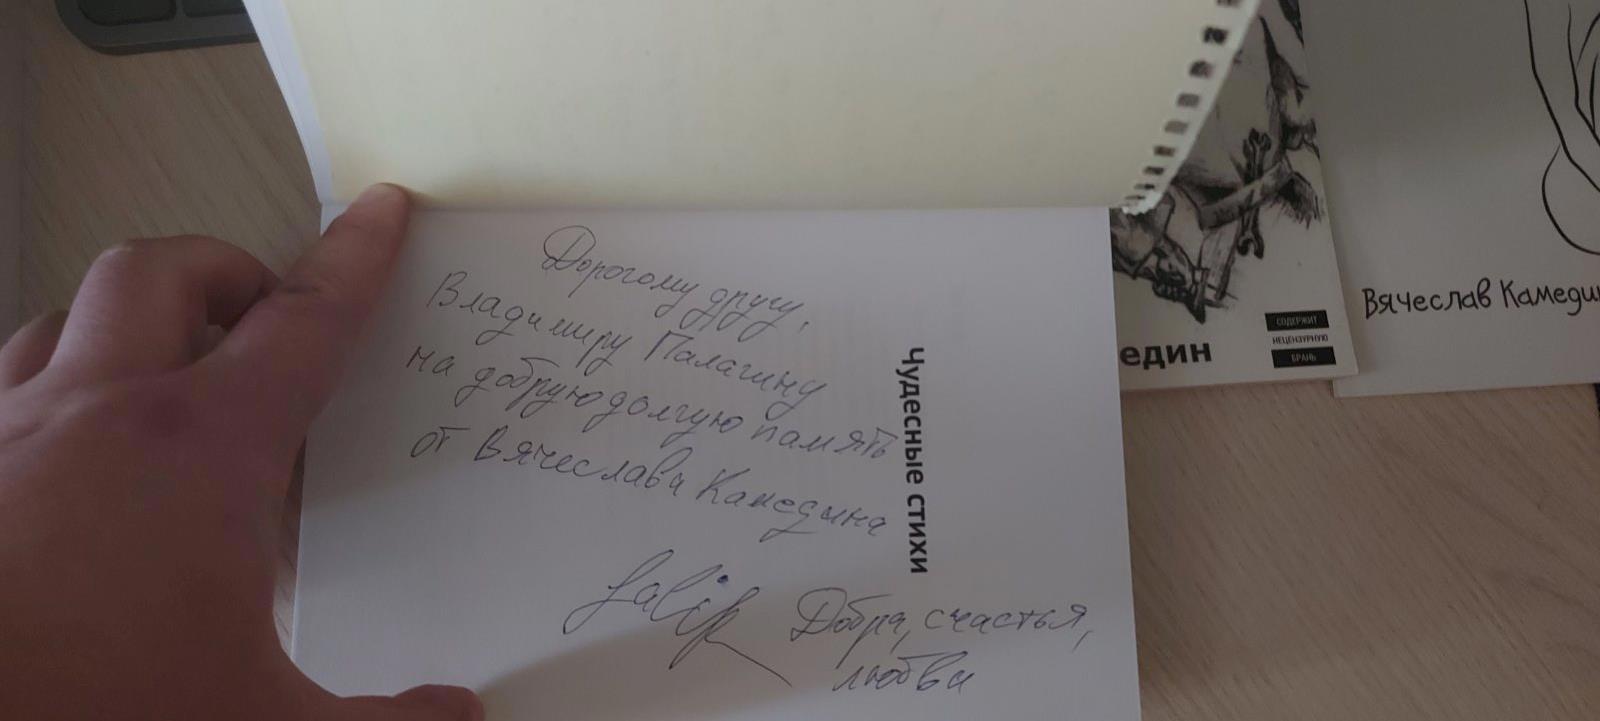 Дорогому другу,
Владимиру Палагину
на добрую долгую память
от Вячеслава Камедина
Добра, счастья,
любви
Чудесные стихи
един
СОДЕРЖИТ
НЕЦЕНЗУРНУЮ
БРАНЬ
Вячеслав Камедин